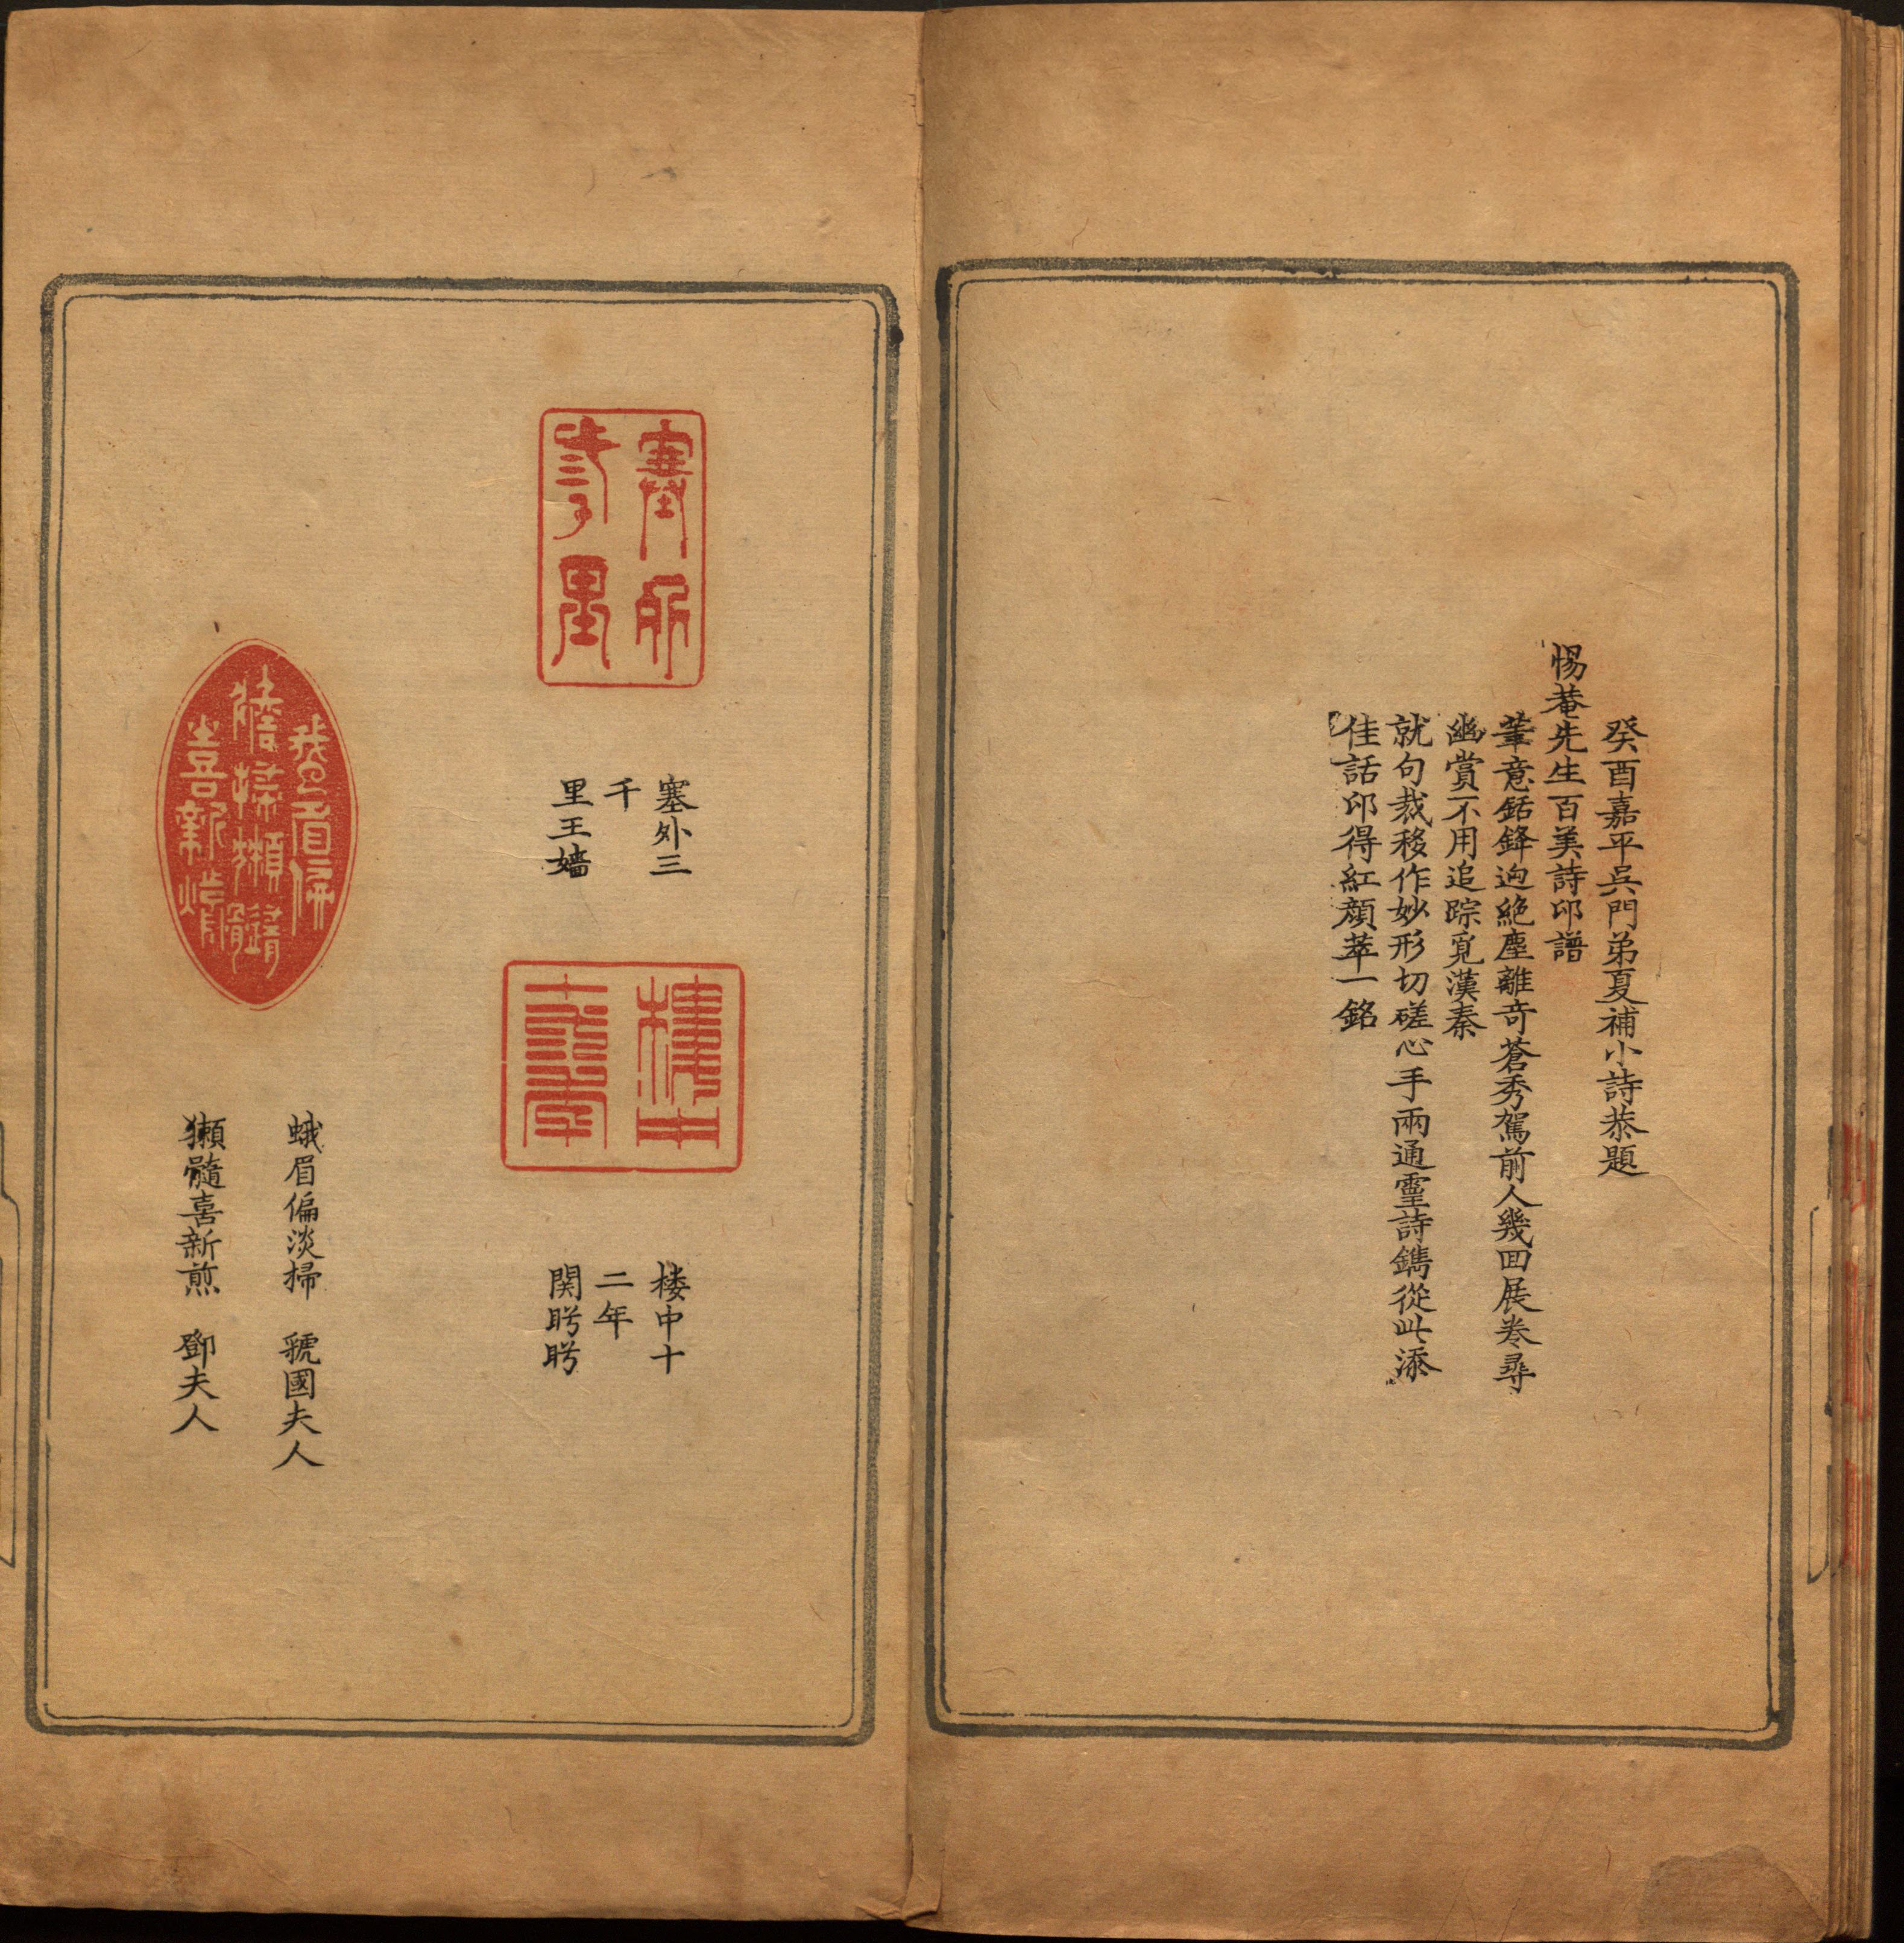 癸酉嘉平吳門弟夏補小詩恭題
惕菴先生百美詩印譜
筆意銛鋒逈絶塵離奇蒼秀駕前人幾回展卷尋
幽賞不用追踪覓漢秦
就句裁移作妙形切磋心手兩通靈詩鐫從此添
佳話印得紅顏萃一銘
塞外三千里
塞外三
千
里王嬙
樓中十二年
楼中十
二年
関盻盻
蛾眉偏淡掃獺髓喜新煎
蛾眉偏淡掃 虢國夫人
獺髓喜新煎 鄧夫人